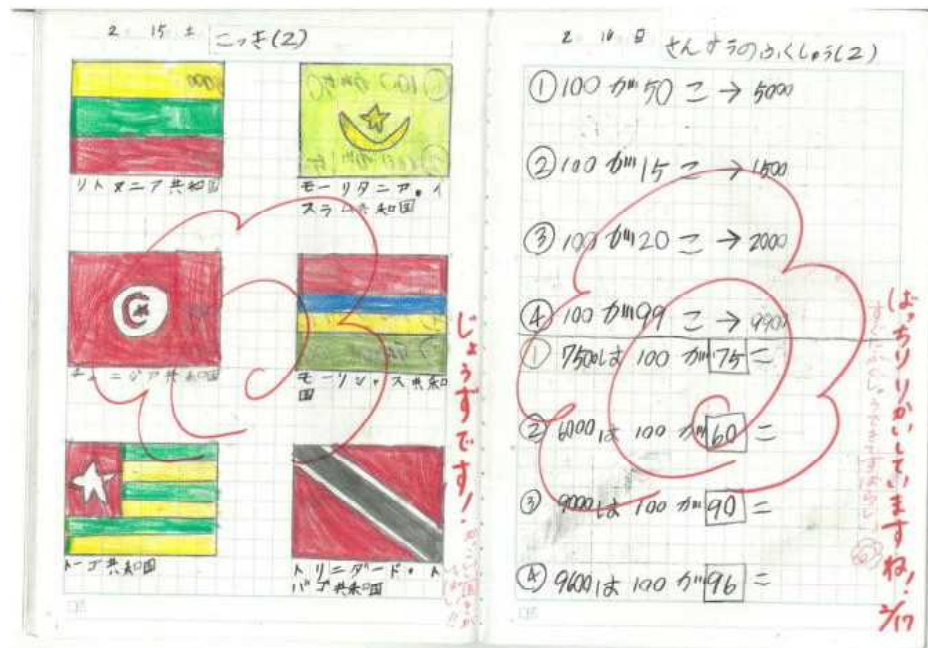 2 15 土 こっき(2)
リトヌニア共和国
モーリタニア・イ
スラム共和国
チュニジア共和国
モーリシャス共和
国
トーゴ共和国
トリニダード・ト
バゴ共和国
じょうずです!
2 16 日 さんすうのふくしゅう(2)
① 100が50こ→5000
② 100が15こ→1500
③ 100が20こ→2000
④ 100が99こ→9900
① 7500は100が75こ
② 6000は100が60こ
③ 9000は100が90こ
④ 9600は100が96こ
ばっちりりかいしていますね!
2/17